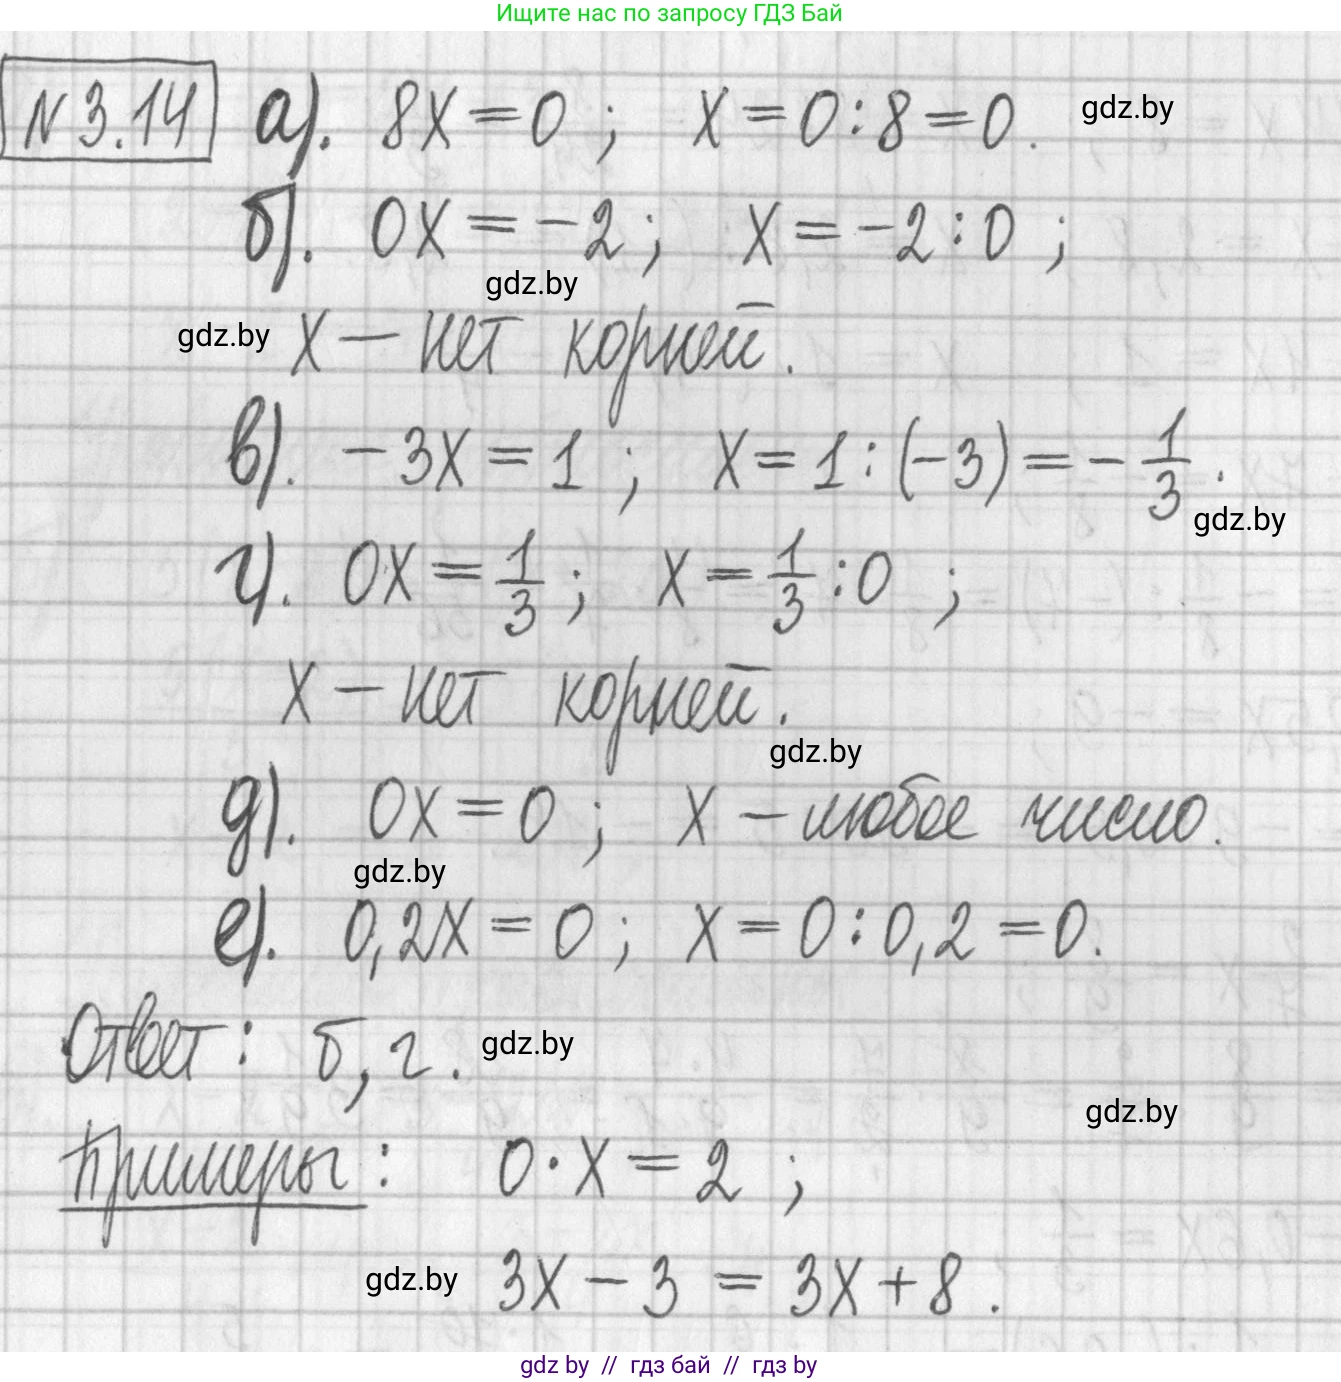 Ищите нас по запросу ГДЗ Бай
№ 3.14 а). 8x = 0 ; x = 0 : 8 = 0 . gdz.by
б). 0x = -2 ; x = -2 : 0 ;
gdz.by
gdz.by x – нет корней.
в). -3x = 1 ; x = 1 : (-3) = - 1/3 .
gdz.by
г). 0x = 1/3 ; x = 1/3 : 0 ;
x – нет корней.
gdz.by
д). 0x = 0 ; x – любое число.
gdz.by
е). 0,2x = 0 ; x = 0 : 0,2 = 0.
Ответ: б, г. gdz.by
gdz.by
Примеры: 0 · x = 2 ;
gdz.by 3x - 3 = 3x + 8 .
gdz by // гдз бай // гдз by